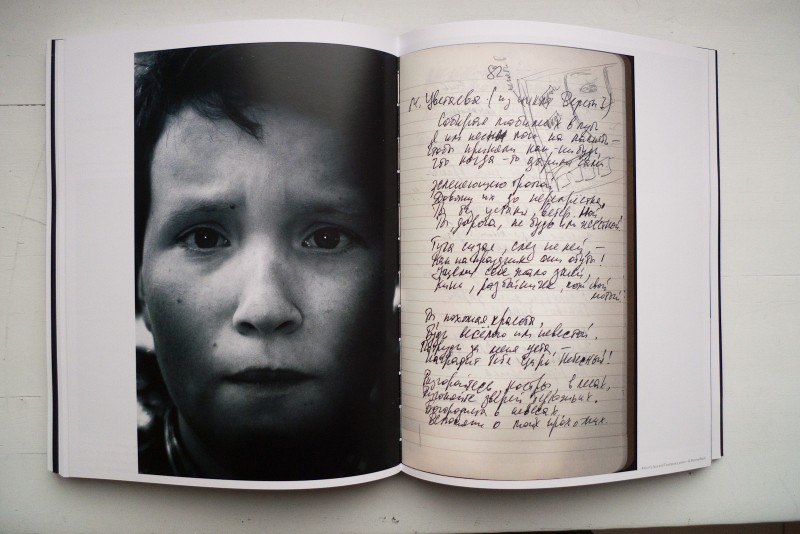 82
М. Цветаева (из книги Версты 2)
Собирая любимых в путь
Я им песни пою на память –
Чтобы приняли как-нибудь,
Что когда-то дарили сами.
Зеленеющею тропой
Довожу их до перекрестка,
Ты без устали, ветер, пой,
Ты, дорога, не будь им жесткой!
Туча сизая, слез не лей, –
Как на праздник они обуты!
Ущеми себе жало, змей,
Кинь, разбойничек, нож свой
лютый!
Ты, прохожая красота,
Будь весёлою им невестой.
Потруди за меня уста, –
Наградит тебя Царь Небесный!
Разгорайтесь, костры, в лесах,
Разгоняйте зверей берложьих.
Богородица в небесах,
Вспомяни о моих прохожих.